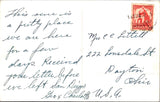 This sure is
a pretty place
we are here
for a few
days. Received
your letter before
we left San Diego
Mrs C C Littell
222 Lonsdale St
Dayton
Ohio
U.S.A.